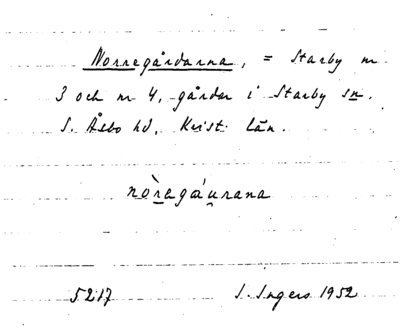 Norregårdarna, = Starby nr
3 och nr 4, gårdar i Starby sn.
S. Åsbo hd, Krist. län.
nòragáu̯rana
5217 I. Ingers 1952